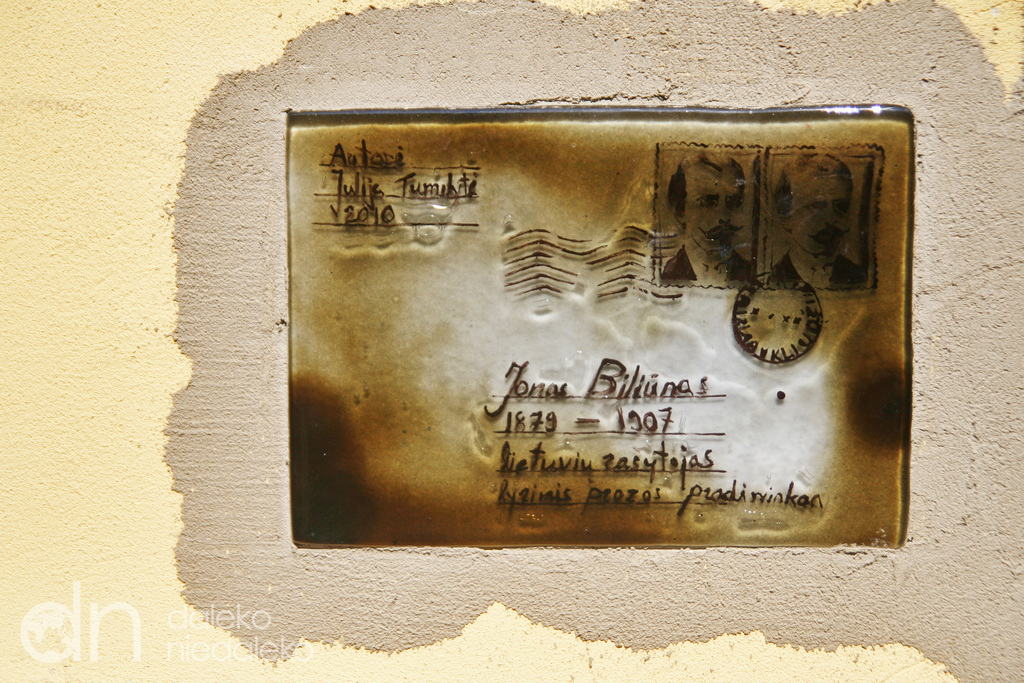 Autorė
Julija
2010
Jonas Biliūnas
1879 - 1907
lietuvių rasytojas
lyrinis prozos pradininkas
dn daleko
niedaleko